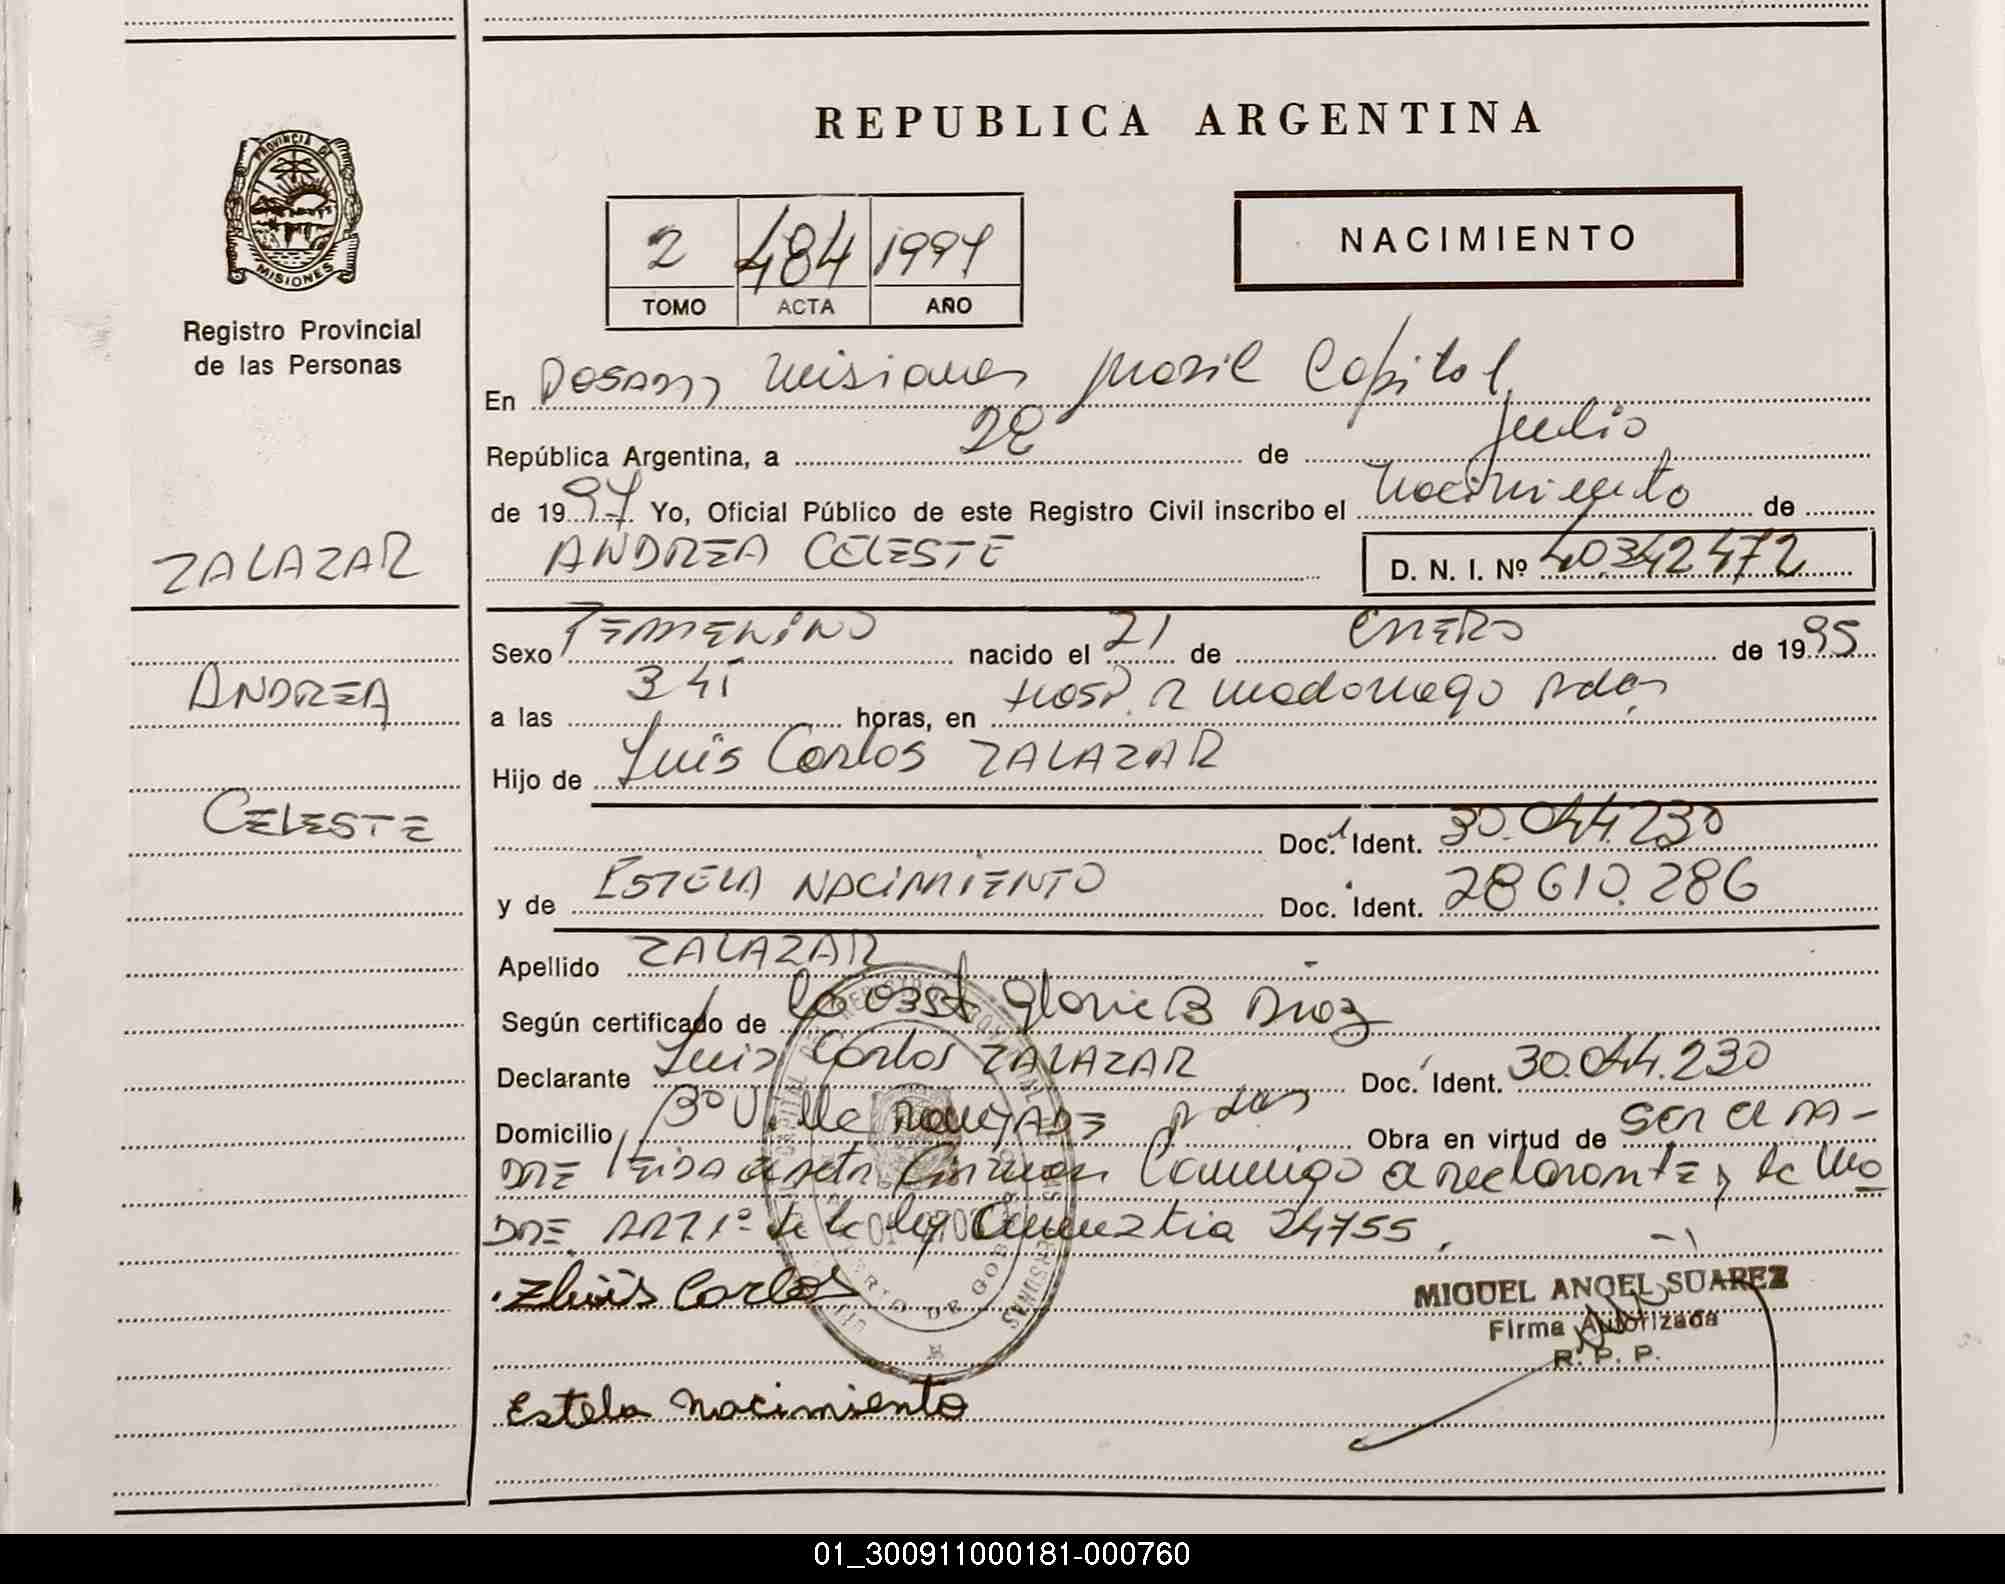 REPUBLICA ARGENTINA
PROVINCIA DE
MISIONES
Registro Provincial
de las Personas
2 484 1997
TOMO ACTA AÑO
NACIMIENTO
En Posadas Misiones Movil Capital
República Argentina, a 28 de Julio
de 1997 Yo, Oficial Público de este Registro Civil inscribo el Nacimiento de
ANDREA CELESTE D. N. I. Nº 40342472
ZALAZAR
ANDREA
CELESTE
Sexo FEMENINO nacido el 21 de ENERO de 1995
a las 345 horas, en Hosp. R Madariaga Pdas
Hijo de Luis Carlos ZALAZAR
Doc. Ident. 30.044.230
y de ESTELA NACIMIENTO Doc. Ident. 28610.286
Apellido ZALAZAR
Según certificado de la Obst Gloria B Diaz
Declarante Luis Carlos ZALAZAR Doc. Ident. 30.044.230
Domicilio Bº Villa Pdas Obra en virtud de ser el PA-
DRE leida acta Firman Conmigo declarante y la Ma
DRE ART 1º de la ley Amneztia 24755.
Zluis Carlos
MIGUEL ANGEL SUAREZ
Firma Autorizada
R. P. P.
Estela Nacimiento
01_300911000181-000760